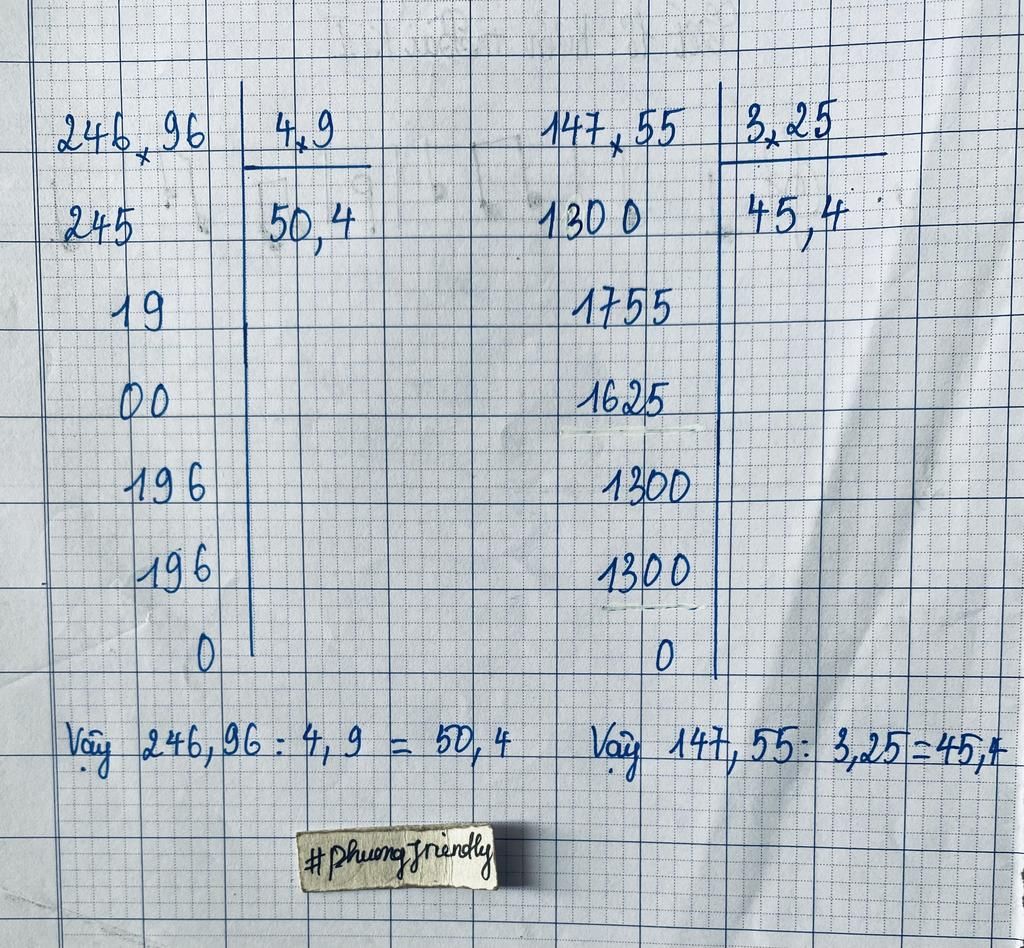 246,96 4,9 147,55 3,25
245 50,4 1300 45,4
19 1755
00 1625
196 1300
196 1300
0 0
Vậy 246,96 : 4,9 = 50,4 Vậy 147,55 : 3,25 = 45,4
#phuongfriendly